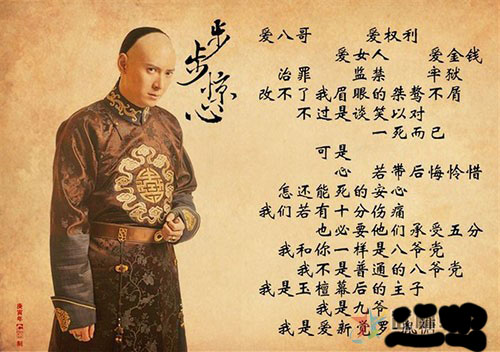 步步惊心
爱八哥 爱权利
爱女人 爱金钱
治罪 监禁 牢狱
改不了我眉眼的桀骜不屑
不过是谈笑以对
一死而已
可是
心 若带后悔怜惜
怎还能死的安心
我们若有十分伤痛
也必要他们承受五分
我和你一样是八爷党
我不是普通的八爷党
我是玉檀幕后的主子
我是九爷
我是爱新觉罗
庚寅年
制